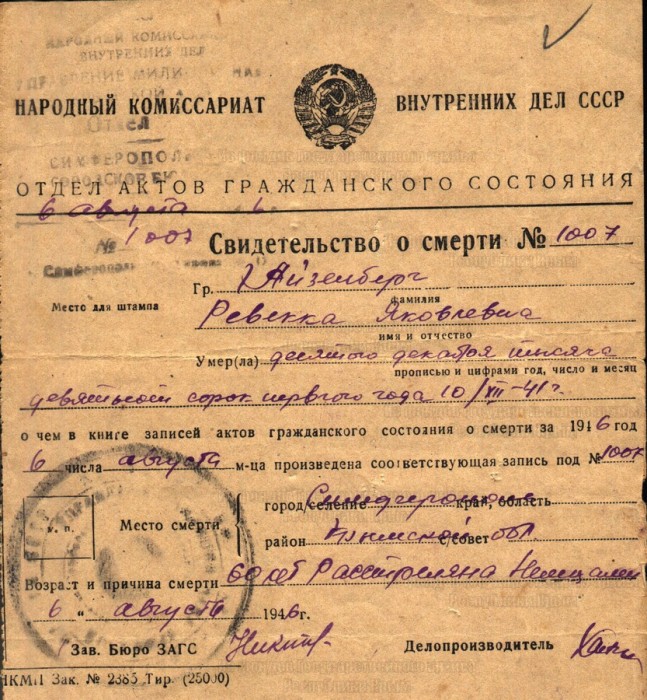 НАРОДНЫЙ КОМИССАРИАТ
ВНУТРЕННИХ ДЕЛ
УПРАВЛЕНИЕ МИЛИ
ОТДЕЛ
СИМФЕРОПОЛ
НАРОДНЫЙ КОМИССАРИАТ ВНУТРЕННИХ ДЕЛ СССР
ОТДЕЛ АКТОВ ГРАЖДАНСКОГО СОСТОЯНИЯ
6 августа 6
№ 1007 Свидетельство о смерти № 1007
Гр. Айзенберг
Место для штампа фамилия
Ревекка Яковлевна
имя и отчество
Умер(ла) десятого декабря тысяча
прописью и цифрами год, число и месяц
девятьсот сорок первого года 10/XII-41 г.
о чем в книге записей актов гражданского состояния о смерти за 1946 год
6 числа августа м-ца произведена соответствующая запись под № 1007
город/селение Симферополь край, область
М. П. Место смерти
район Крымской с/совет обл.
Возраст и причина смерти 60 лет Расстреляна Немцами
6 " августа 1946 г.
Зав. Бюро ЗАГС Делопроизводитель
НКМП Зак. № 2385 Тир. (25000)